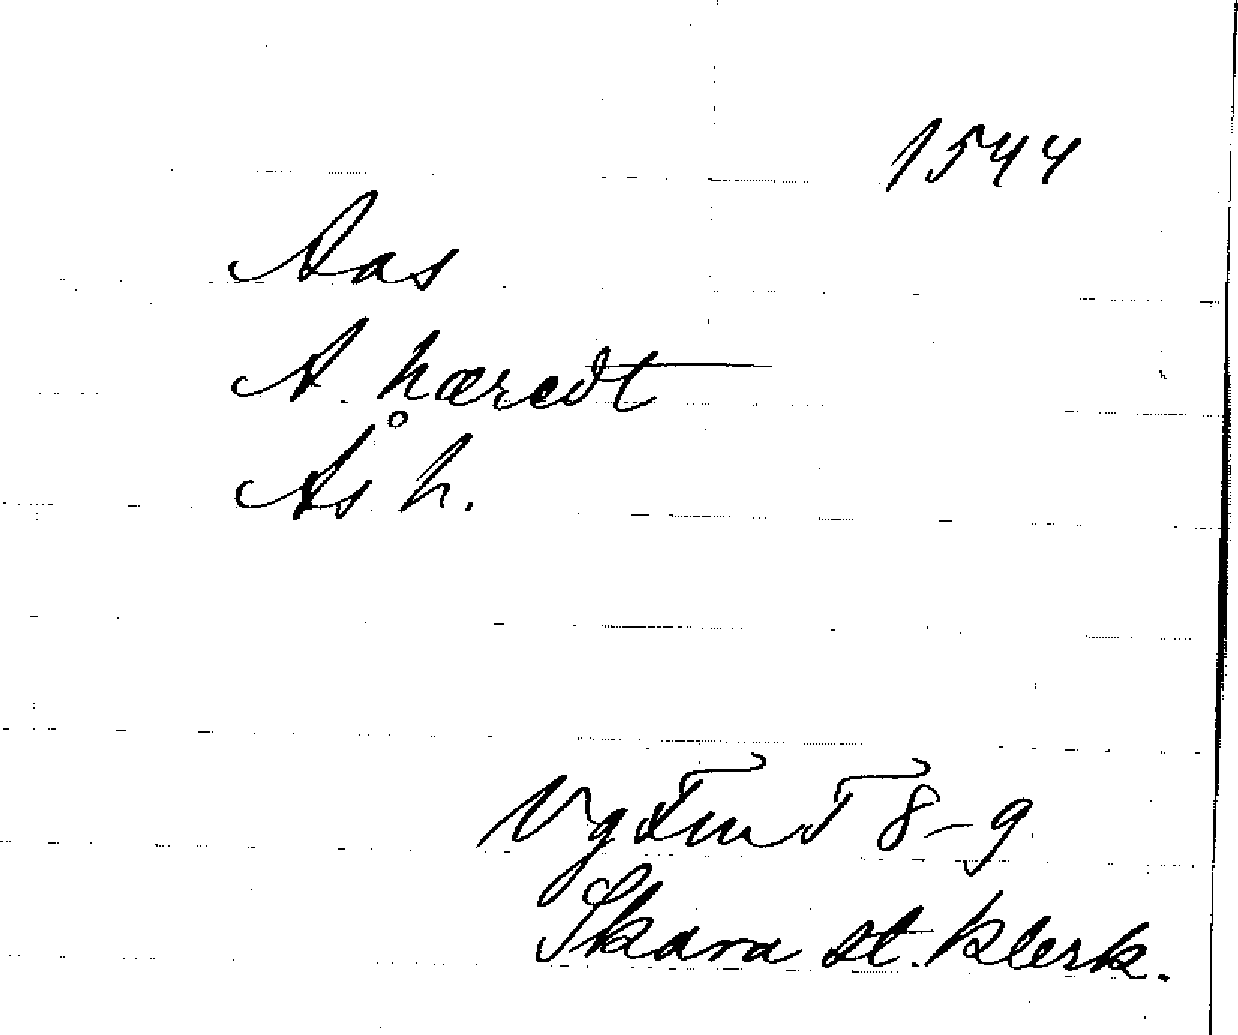 1544
Aas
A. hæredt
Ås h.
Vg Fm T 8-9
Skara st. klerk.